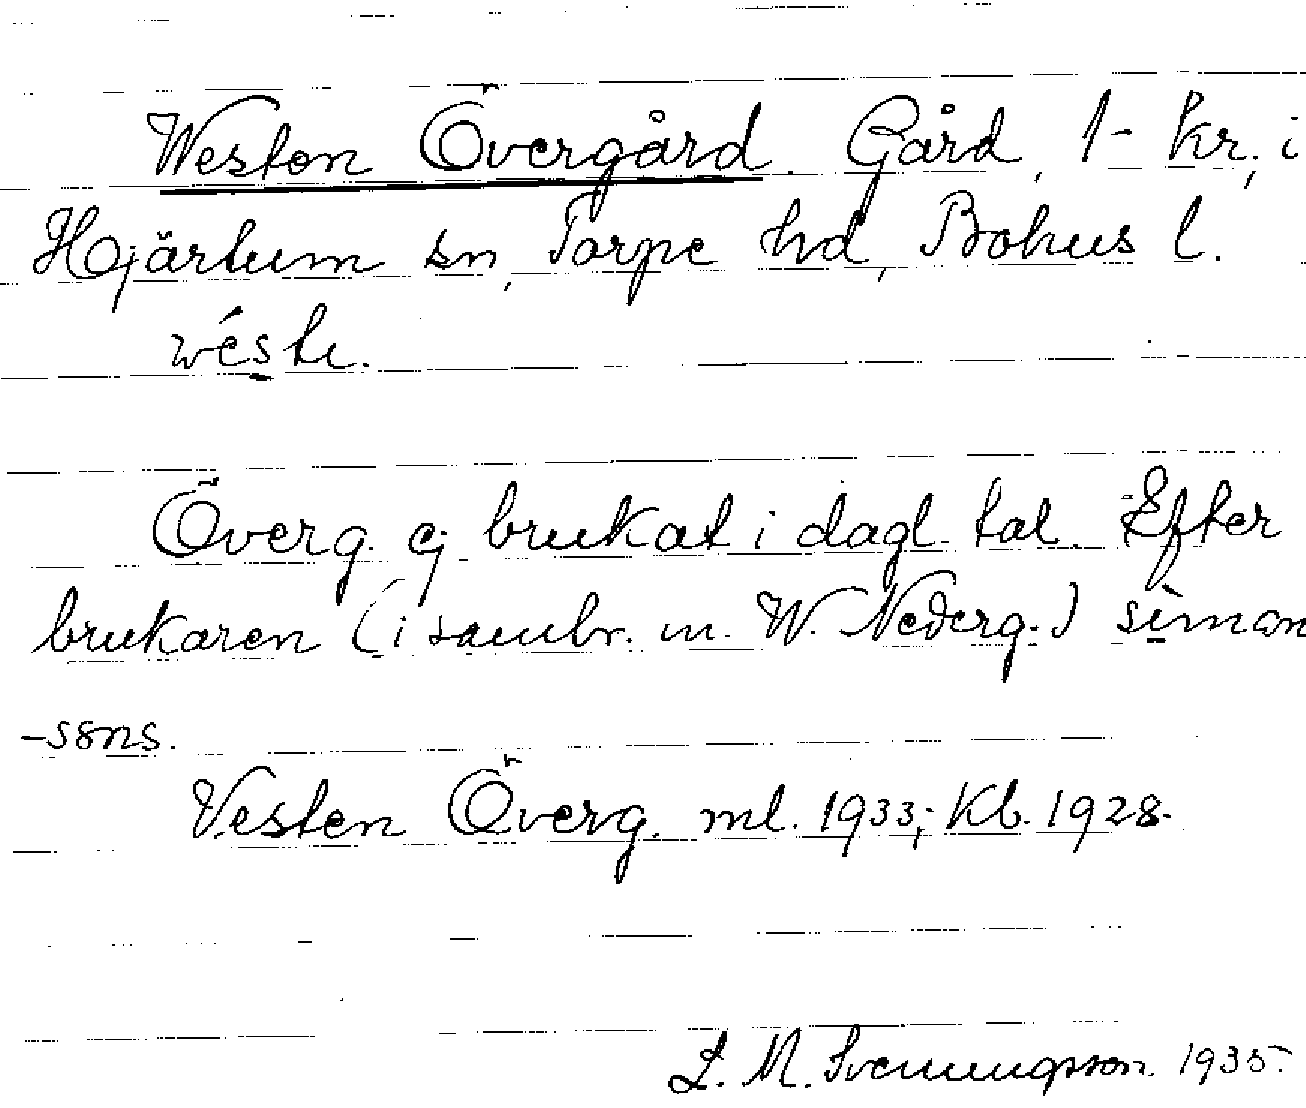 Westen Övergård. Gård, 1- kr., i
Hjärtum sn, Torpe hd, Bohus l.
véste.
Överg. ej brukat i dagl. tal. Efter
brukaren (i sambr. m. W. Nederg.) sìman
-sȣns.
Vesten Överg. ml. 1933; Kb. 1928.
L. M. Svenungsson. 1935.